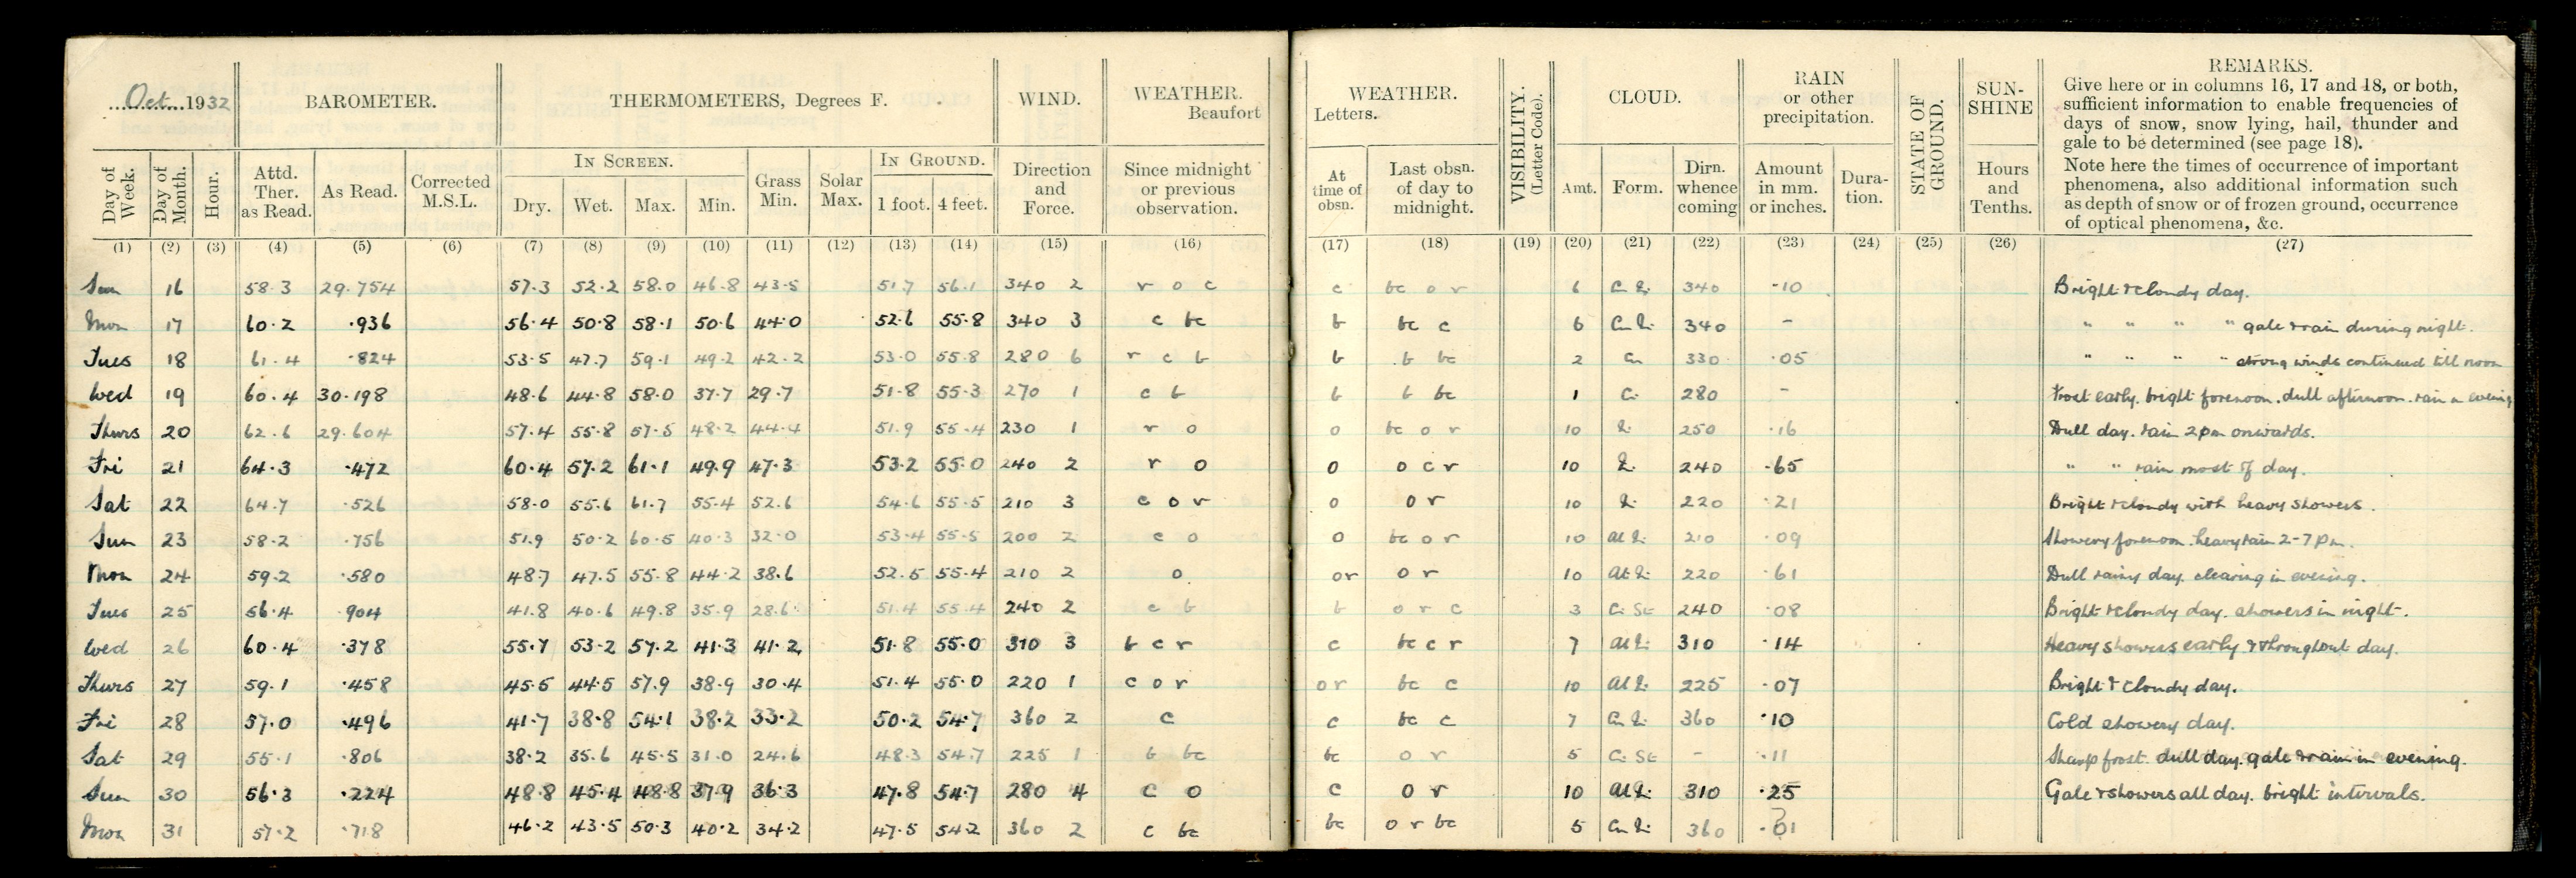 Oct. 1932 BAROMETER. THERMOMETERS, Degrees F. WIND. WEATHER. Beaufort
Day of Week. Day of Month. Hour. Attd. Ther. as Read. As Read. Corrected M.S.L. IN SCREEN. Dry. Wet. Max. Min. Grass Min. Solar Max. IN GROUND. 1 foot. 4 feet. Direction and Force. Since midnight or previous observation.
(1) (2) (3) (4) (5) (6) (7) (8) (9) (10) (11) (12) (13) (14) (15) (16)
WEATHER. Letters. VISIBILITY. (Letter Code). CLOUD. RAIN or other precipitation. STATE OF GROUND. SUN-SHINE REMARKS.
Give here or in columns 16, 17 and 18, or both,
sufficient information to enable frequencies of
days of snow, snow lying, hail, thunder and
gale to be determined (see page 18).
Note here the times of occurrence of important
phenomena, also additional information such
as depth of snow or of frozen ground, occurrence
of optical phenomena, &c.
At time of obsn. Last obsn. of day to midnight. Amt. Form. Dirn. whence coming Amount in mm. or inches. Dura-tion. Hours and Tenths.
(17) (18) (19) (20) (21) (22) (23) (24) (25) (26) (27)
Sun 16 58.3 29.754 57.3 52.2 58.0 46.8 43.5 51.7 56.1 340 2 r o c c bc o r 6 340 .10 Bright & cloudy day.
Mon 17 60.2 .936 56.4 50.8 58.1 50.6 44.0 52.6 55.8 340 3 c bc b bc c 6 340 - " " " " gale & rain during night.
Tues 18 61.4 .824 53.5 47.7 59.1 49.2 42.2 53.0 55.8 280 6 r c b b b bc 2 330 .05 " " " " strong winds continued till noon
Wed 19 60.4 30.198 48.6 44.8 58.0 37.7 29.7 51.8 55.3 270 1 c b b b bc 1 280 - Frost early. bright forenoon. dull afternoon. rain in evening
Thurs 20 62.6 29.604 57.4 55.8 57.5 48.2 44.4 51.9 55.4 230 1 r o o bc o r 10 250 .16 Dull day. rain 2 pm onwards.
Fri 21 64.3 .472 60.4 57.2 61.1 49.9 47.3 53.2 55.0 240 2 r o o o c r 10 240 .65 " " rain most of day.
Sat 22 64.7 .526 58.0 55.6 61.7 55.4 52.6 54.6 55.5 210 3 c o r o o r 10 220 .21 Bright & cloudy with heavy showers.
Sun 23 58.2 .756 51.9 50.2 60.5 40.3 32.0 53.4 55.5 200 2 c o o bc o r 10 210 .09 Showery forenoon. heavy rain 2-7 pm.
Mon 24 59.2 .580 48.7 47.5 55.8 44.2 38.6 52.5 55.4 210 2 o or o r 10 220 .61 Dull rainy day. clearing in evening.
Tues 25 56.4 .904 41.8 40.6 49.8 35.9 28.6 51.4 55.4 240 2 c b b o r c 3 Ci St 240 .08 Bright & cloudy day. showers in night.
Wed 26 60.4 .378 55.7 53.2 57.2 41.3 41.2 51.8 55.0 310 3 b c r c bc c r 7 310 .14 Heavy showers early & throughout day.
Thurs 27 59.1 .458 45.5 44.5 57.9 38.9 30.4 51.4 55.0 220 1 c o r or bc c 10 225 .07 Bright & cloudy day.
Fri 28 57.0 .496 41.7 38.8 54.1 38.2 33.2 50.2 54.7 360 2 c c bc c 7 360 .10 Cold showery day.
Sat 29 55.1 .806 38.2 35.6 45.5 31.0 24.6 48.3 54.7 225 1 b bc bc o r 5 Ci St - .11 Sharp frost. dull day. gale & rain in evening.
Sun 30 56.3 .224 48.8 45.4 48.8 37.9 36.3 47.8 54.7 280 4 c o c o r 10 310 .25 Gale & showers all day. bright intervals.
Mon 31 57.2 .718 46.2 43.5 50.3 40.2 34.2 47.5 54.2 360 2 c bc bc o r bc 5 360 .01